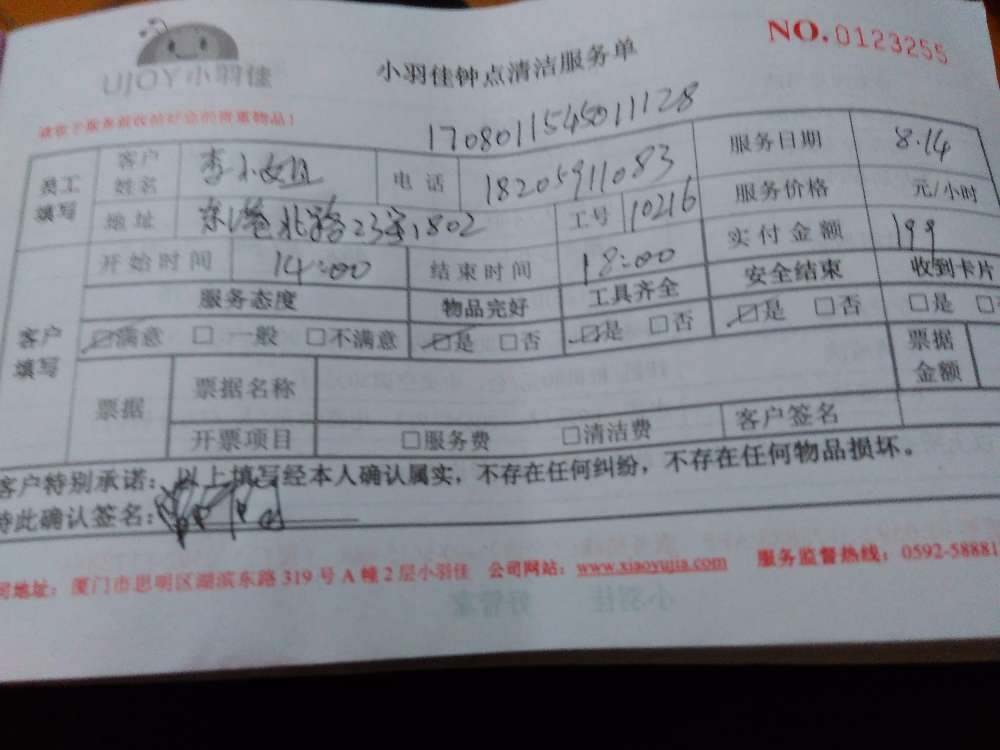 UJOY小羽佳
小羽佳钟点清洁服务单
NO.0123255
请收下服务前收拾好您的贵重物品!
1708011545011128
员工填写 客户姓名 李小姐 电话 18205911083 服务日期 8.14
地址 东港北路23号1802 工号 10216 服务价格 元/小时
实付金额 199
开始时间 14:00 结束时间 18:00
客户填写 服务态度 物品完好 工具齐全 安全结束 收到卡片
☑满意 □一般 □不满意 ☑是 □否 ☑是 □否 ☑是 □否 □是 □
票据 票据名称 票据金额
开票项目 □服务费 □清洁费 客户签名
客户特别承诺:以上填写经本人确认属实,不存在任何纠纷,不存在任何物品损坏。
特此确认签名:
司地址:厦门市思明区湖滨东路319号A幢2层小羽佳 公司网站:www.xiaoyujia.com 服务监督热线:0592-58881
小羽佳 好管家